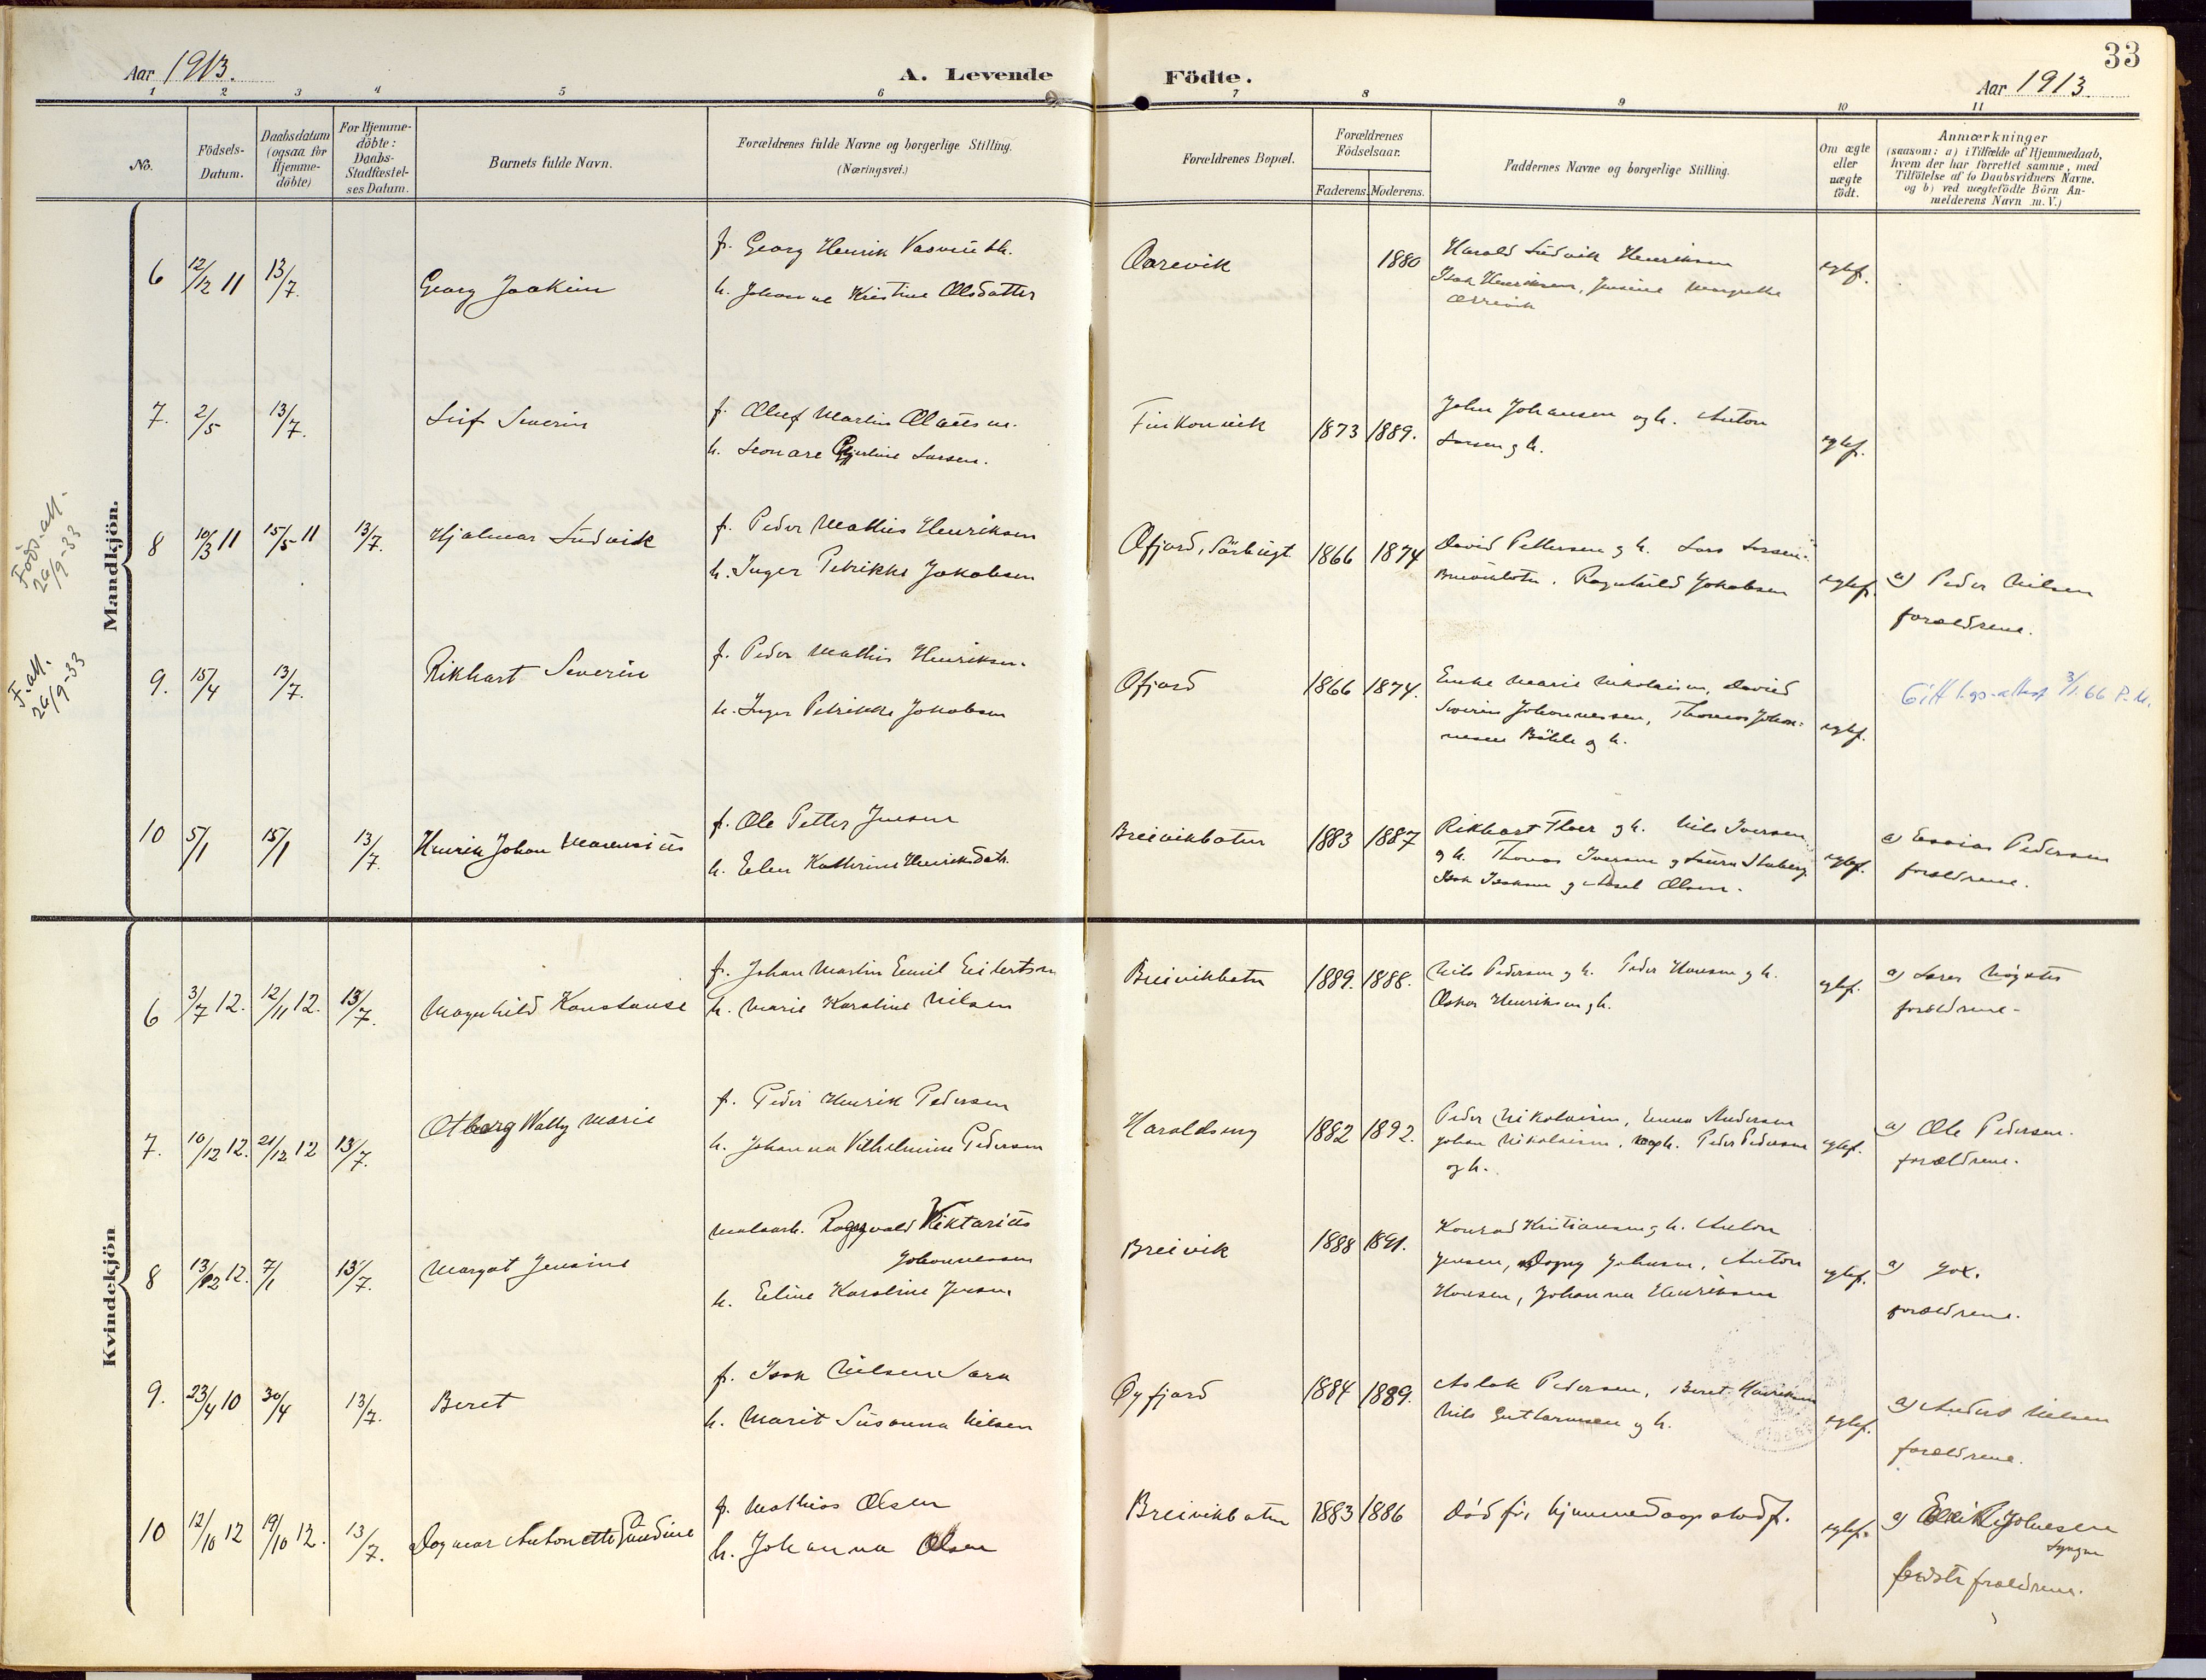 33
Aar 1913.
A. Levende Födte.
Aar 1913.
1 2 3 4 5 6 7 8 9 10 11
No.
Födsels-
Datum.
Daabsdatum
(ogsaa for
Hjemme-
döbte)
For Hjemme-
döbte:
Daabs-
Stadfæstel-
ses Datum.
Barnets fulde Navn.
Forældrenes fulde Navne og borgerlige Stilling.
(Næringsvei.)
Forældrenes Bopæl.
Forældrenes
Födselsaar.
Faderens. Moderens.
Faddernes Navne og borgerlige Stilling.
Om ægte
eller
uægte
födt.
Anmærkninger
(saasom: a) i Tilfælde af Hjemmedaab,
hvem der har forrettet samme, med
Tilföielse af to Daabsvidners Navne.
og b) ved uægtefödte Börn An-
melderens Navn m. V.)
Mandkjön.
6 12/12 11 13/7. Georg Joakim
f. Georg Henrik
h. Johanne Kristine Olsdatter
1880
Harald Ludvik Henriksen
Isak Henriksen,
egtef.
7. 2/5 13/7. Leif Severin
f. Oluf Martin
h. Leonare Larsen.
Finkonvik 1873 1889.
John Johansen og h. Anton
Larsen og h.
egtef.
Föds.att.
26/9-33
8 10/3 11 15/5 11 13/7. Hjalmar Ludvik
f. Peder Mathis Henriksen
h. Inger Petrikke Jakobsen
Ofjord, 1866 1874
David Pettersen og h. Lars
Ragnhild Jakobsen
egtef.
a) Peder Nilsen
forældrene.
F.att.
26/9-33
9. 15/4 13/7. Rikhart Severin
f. Peder Mathis Henriksen.
h. Inger Petrikke Jakobsen
Ofjord 1866 1874.
Marie Nikolaisen, David
Severin Johannessen, Thomas Johan-
nesen og h.
egtef.
3/1.66
10 5/1 15/1 13/7. Henrik Johan Marensius
f. Ole Petter Jensen
h. Elen Kathrine Henriksdatr.
Breivikbotn 1883 1887
Rikhart Floer og h. Nils Iversen
og h. Thomas Iversen og
Isak Isaksen og Olsen.
egtef.
a) Esaias Pedersen
forældrene.
Kvindekjön
6 3/7 12. 12/11 12. 13/7. Magnhild Konstanse
f. Johan Martin Emil Eilertsen
h. Marie Karoline Nilsen
Breivikbotn 1889. 1888.
Nils Pedersen og h. Peder Hansen og h.
Oskar Henriksen og h.
egtef.
a) Lars
forældrene.
7. 10/12 12. 21/12 12 13/7. Otberg Wally Marie
f. Peder Henrik Pedersen
h. Johanna Vilhelmine Pedersen
Haraldseng 1882 1892.
Peder Nikolaisen, Emma Andersen
Johan Nikolaisen, og h. Peder Pedersen
og h.
egtef.
a) Ole Pedersen.
forældrene.
8 13/12 12. 7/1 13/7. Margot Jensine
Ragnvald Viktarius
Johannessen
h. Eline Karoline Jensen
Breivik 1888 1891.
Konrad Kristiansen og h. Anton
Jensen, Dagny Johnsen, Anton
Hansen, Johanna Henriksen
egtef.
a)
forældrene.
9. 23/4 10 30/4 13/7. Beret
f. Isak Nilsen Sara
h. Marit Susanna Nilsen
Öyfjord 1884 1889.
Aslak Pedersen, Beret Henriksen
Nils Guttormsen og h.
egtef.
a) Anders Nilsen
forældrene.
10 12/10 12 19/10 12. 13/7. Dagmar Antonette
f. Mathias Olsen
h. Johanna Olsen
Breivikbotn 1883 1886
död før hjemmedaap stadf.
egtef.
a) Johnesen
forældrene.